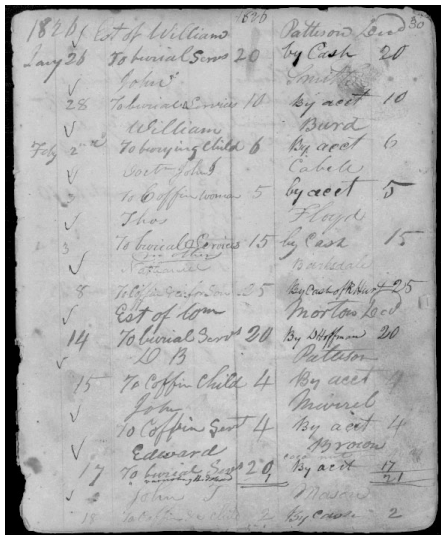 1820 Est of William 1820 Pattison Decd 30
Jany 26 To burial Servs 20 by Cash 20
John Smith
28 To burial Services 10 By acct 10
William Burd
Feby 2nd To burying Child 6 By acct 6
John J Cabell
To Coffin woman 5 by acct 5
Thos Floyd
3 To burial Services 15 by Cash 15
Nathaniel
8 To Coffin 25 By Cash of 25
Est of Tom Mortons Decd
14 To burial Servs 20 By D Hoffman 20
D B Patteson
15 To Coffin Child 4 By acct 4
John
To Coffin Sert 4 By acct 4
Edward Brown
17 To burial Servs 20 By acct 17
21
John J Mason
18 To Coffin child 2 By 2